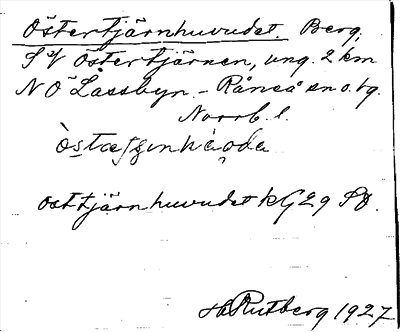 Östertjärnhuvudet. Berg,
SV Östertjärnen, ung. 2 km
NÖ Låssbyn. - Råneå sn o. tg.
Norrb. l.
östtjärnhuvudet kG29 SO.
H Rutberg 1927